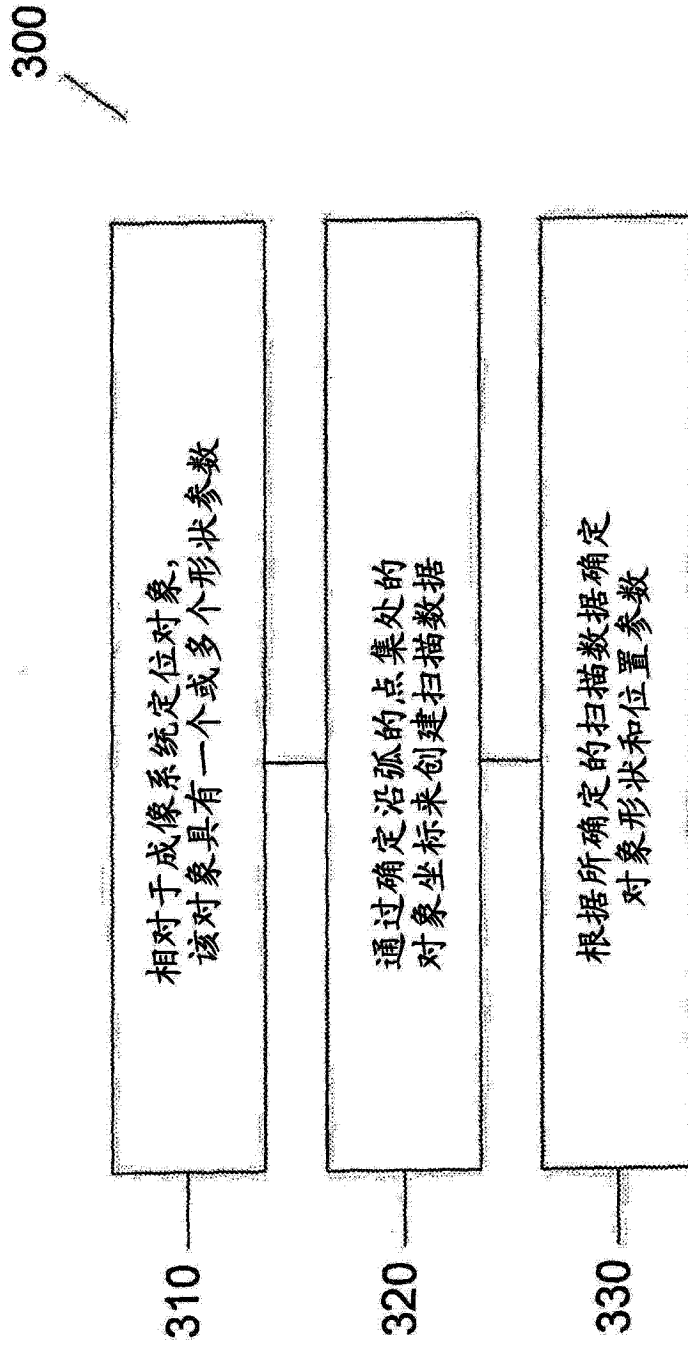 300
310
相对于成像系统定位对象，
该对象具有一个或多个形状参数
320
通过确定沿弧的点集处的
对象坐标来创建扫描数据
330
根据所确定的扫描数据确定
对象形状和位置参数